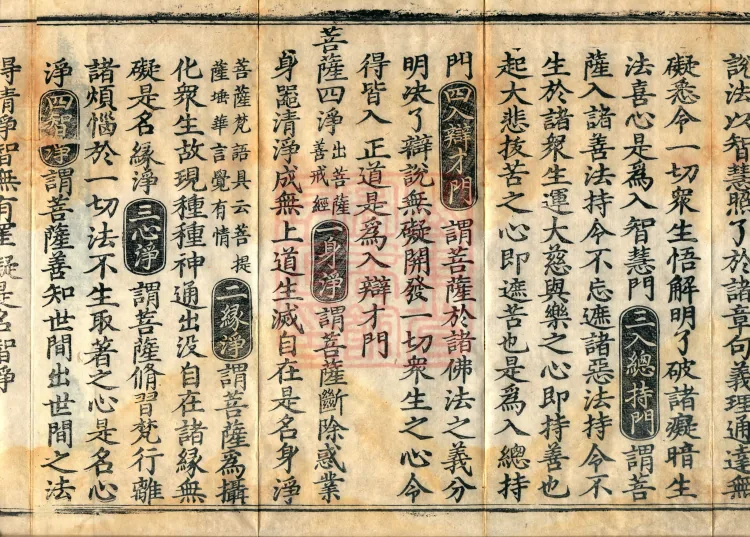 說法以智慧照了於諸章句義理通達無
礙悉令一切衆生悟解明了破諸癡暗生
法喜心是爲入智慧門 三入總持門 謂菩
薩入諸善法持令不忘遮諸惡法持令不
生於諸衆生運大慈與樂之心即持善也
起大悲拔苦之心即遮苦也是爲入總持
門 四入辯才門 謂菩薩於諸佛法之義分
明决了辯說無礙開發一切衆生之心令
得皆入正道是爲入辯才門
菩薩四淨 出菩薩善戒經 一身淨 謂菩薩斷除惑業
身器清淨成無上道生滅自在是名身淨
菩薩梵語具云菩提薩埵華言覺有情 二緣淨 謂菩薩爲攝
化衆生故現種種神通出没自在諸緣無
礙是名緣淨 三心淨 謂菩薩脩習梵行離
諸煩惱於一切法不生取著之心是名心
淨 四智淨 謂菩薩善知世間出世間之法
得清淨智無有罣礙是名智淨